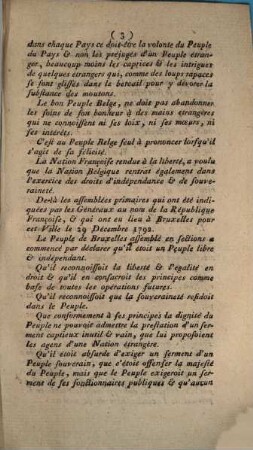 ( 3 )
dans chaque Pays ce doit-être la volonté du Peuple
du Pays & non les préjugés d'un Peuple étran-
ger, beaucoup moins les caprices & les intrigues
de quelques étrangers qui, comme des loups rapaces
se sont glissés dans le bercail pour y dévorer la
substance des moutons.
Le bon Peuple Belge, ne doit pas abandonner
les soins de son bonheur à des mains étrangeres
qui ne connoissent ni ses loix, ni ses mœurs, ni
ses intérêts.
C'est au Peuple Belge seul à prononcer lorsqu'il
s'agit de sa félicité.
La Nation Françoise rendue à la liberté, a voulu
que la Nation Belgique rentrat également dans
l'exercice des droits d'indépendance & de souve-
raineté.
De-là les assemblées primaires qui ont été indi-
quées par les Généraux au nom de la République
Françoise, & qui ont eu lieu à Bruxelles pour
cet-Ville le 29 Décembre 1792.
Le Peuple de Bruxelles assemblé en sections a
commencé par déclarer qu'il étoit un Peuple libre
& indépendant.
Qu'il reconnoissoit la liberté & l'égalité en
droit & qu'il en consacroit des principes comme
base de toutes les opérations futures.
Qu'il reconnoissoit que la souveraineté résidoit
dans le Peuple.
Que conformément à ses principes la dignité du
Peuple ne pouvoit admettre la prestation d'un ser-
ment captieux inutil & vain, que lui proposoient
les agens d'une Nation étrangère.
Qu'il étoit absurde d'exiger un serment d'un
Peuple souverain, que c'étoit offenser la majesté
du Peuple, mais que le Peuple exigeroit un ser-
ment de ses fonctionnaires publiques & qu'aucun